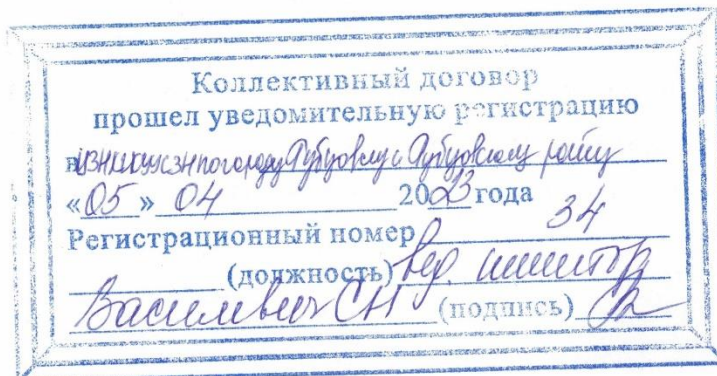 Коллективный договор
прошел уведомительную регистрацию
в по городу Рубцовску и Рубцовскому району
«05» 04 2023 года
Регистрационный номер 34
(должность) вед. инспектор
Василевич СН (подпись)